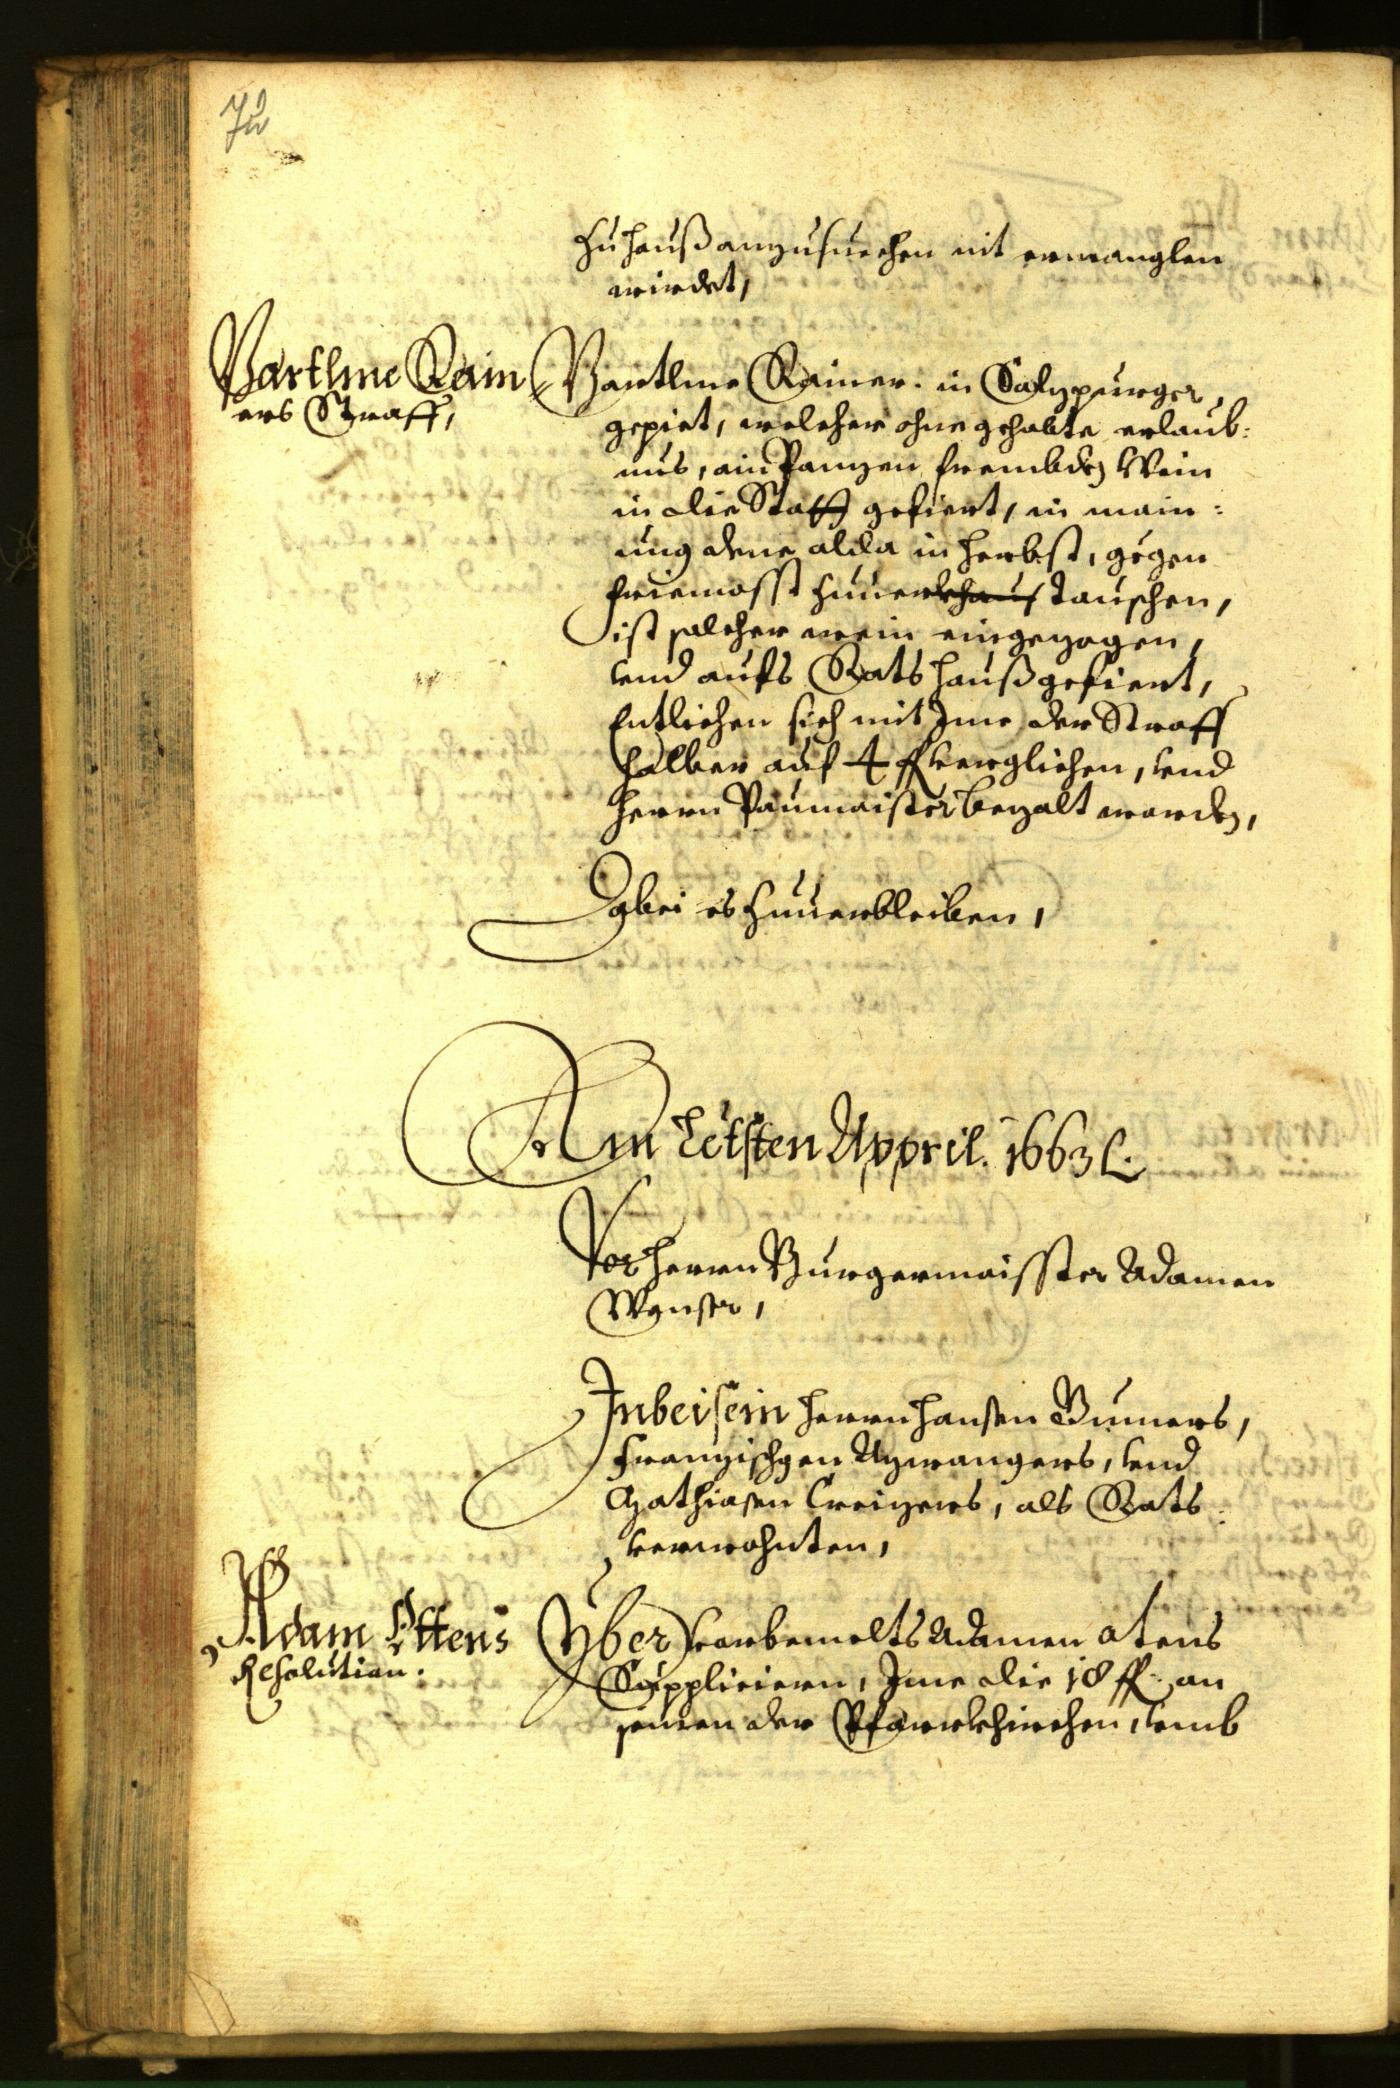 72
zu hauß anzusuechen nit ermanglen
wirdet,
Bartlme Rain
ers Straff,
Bartlme Rainer in Salzpurger
gepiet, welcher ohne gehabte erlaub:
nus, ain Panzen frembden Wein
in die Statt gefiert, in main:
ung dene alda in herbst, gegen
friemosst zuuerkhauf tauschen,
ist solcher wein eingezogen,
vnd aufs Rats hauß gefiert,
Entlichen sich mit Ime der Straff
halber auf 4 fl verglichen, vnd
herrn Paumaister bezalt worden,
Dabei es zuuerbleiben,
Am Letsten Appril. 1663
Vor herrn Burgermaisster Adamen
Wenser,
In beisein herrn hansen
Franzischgen Azwangers, vnd
Mathiasen Creizers, als Rats:
verwohnten,
Adam Ottens
Resolution.
Yber vorbemelts Adamen otens
Suppliciern, Ime die 18 fl. an
seinen der Pfarrkhirchen, vmb